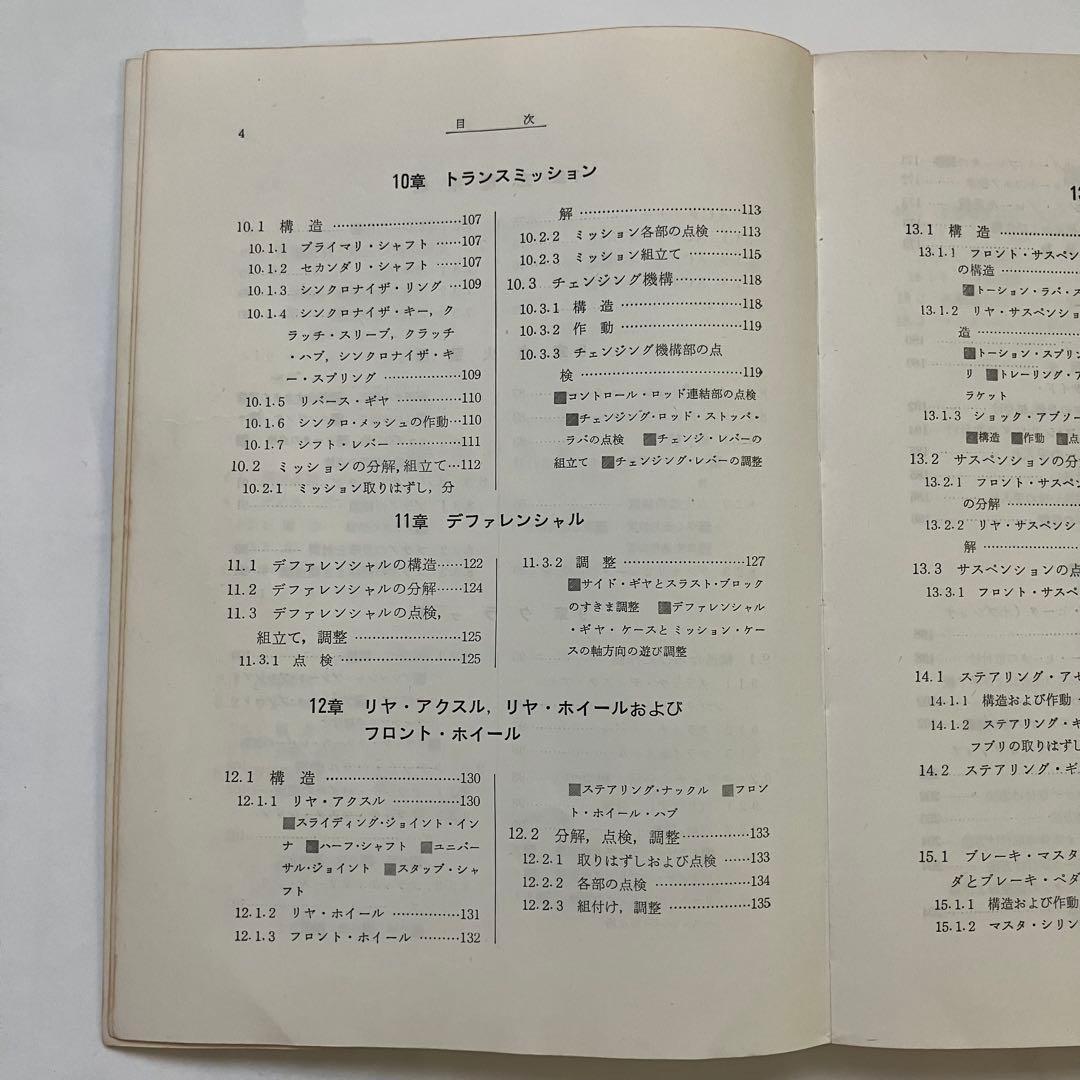 4
目　次
10章　トランスミッション
10.1　構　造 …………………………107
10.1.1　プライマリ・シャフト ……107
10.1.2　セカンダリ・シャフト ……107
10.1.3　シンクロナイザ・リング …109
10.1.4　シンクロナイザ・キー, ク
ラッチ・スリーブ, クラッチ
・ハブ, シンクロナイザ・キ
ー・スプリング ………………109
10.1.5　リバース・ギヤ ……………110
10.1.6　シンクロ・メッシュの作動…110
10.1.7　シフト・レバー ……………111
10.2　ミッションの分解, 組立て…112
10.2.1　ミッション取りはずし, 分
解 ………………………………113
10.2.2　ミッション各部の点検 ……113
10.2.3　ミッション組立て …………115
10.3　チェンジング機構……………118
10.3.1　構　造 ………………………118
10.3.2　作　動 ………………………119
10.3.3　チェンジング機構部の点
検 ………………………………119
■コントロール・ロッド連結部の点検
■チェンジング・ロッド・ストッパ・
ラバの点検　■チェンジ・レバーの
組立て　■チェンジング・レバーの調整
11章　デファレンシャル
11.1　デファレンシャルの構造……122
11.2　デファレンシャルの分解……124
11.3　デファレンシャルの点検,
組立て, 調整 …………………125
11.3.1　点　検 ………………………125
11.3.2　調　整 ………………………127
■サイド・ギヤとスラスト・ブロック
のすきま調整　■デファレンシャル
・ギヤ・ケースとミッション・ケー
スの軸方向の遊び調整
12章　リヤ・アクスル, リヤ・ホイールおよび
フロント・ホイール
12.1　構　造 …………………………130
12.1.1　リヤ・アクスル ……………130
■スライディング・ジョイント・イン
ナ　■ハーフ・シャフト　■ユニバー
サル・ジョイント　■スタップ・シャ
フト
12.1.2　リヤ・ホイール ……………131
12.1.3　フロント・ホイール ………132
■ステアリング・ナックル　■フロン
ト・ホイール・ハブ
12.2　分解, 点検, 調整……………133
12.2.1　取りはずしおよび点検 ……133
12.2.2　各部の点検 …………………134
12.2.3　組付け, 調整 ………………135
13.1　構　造 ……………
13.1.1　フロント・サスペン
の構造 ……………
■トーション・ラバ・ス
13.1.2　リヤ・サスペンショ
造 ……………
■トーション・スプリン
リ　■トレーリング・ア
ラケット
13.1.3　ショック・アブソー
■構造　■作動　■点
13.2　サスペンションの分
13.2.1　フロント・サスペ
の分解 …………
13.2.2　リヤ・サスペンシ
解 ……………
13.3　サスペンションの点
13.3.1　フロント・サスペ
14.1　ステアリング・アセ
14.1.1　構造および作動
14.1.2　ステアリング・ギ
フブリの取りはずし
14.2　ステアリング・ギ
15.1　ブレーキ・マスタ
ダとブレーキ・ペダ
15.1.1　構造および作動
15.1.2　マスタ・シリン